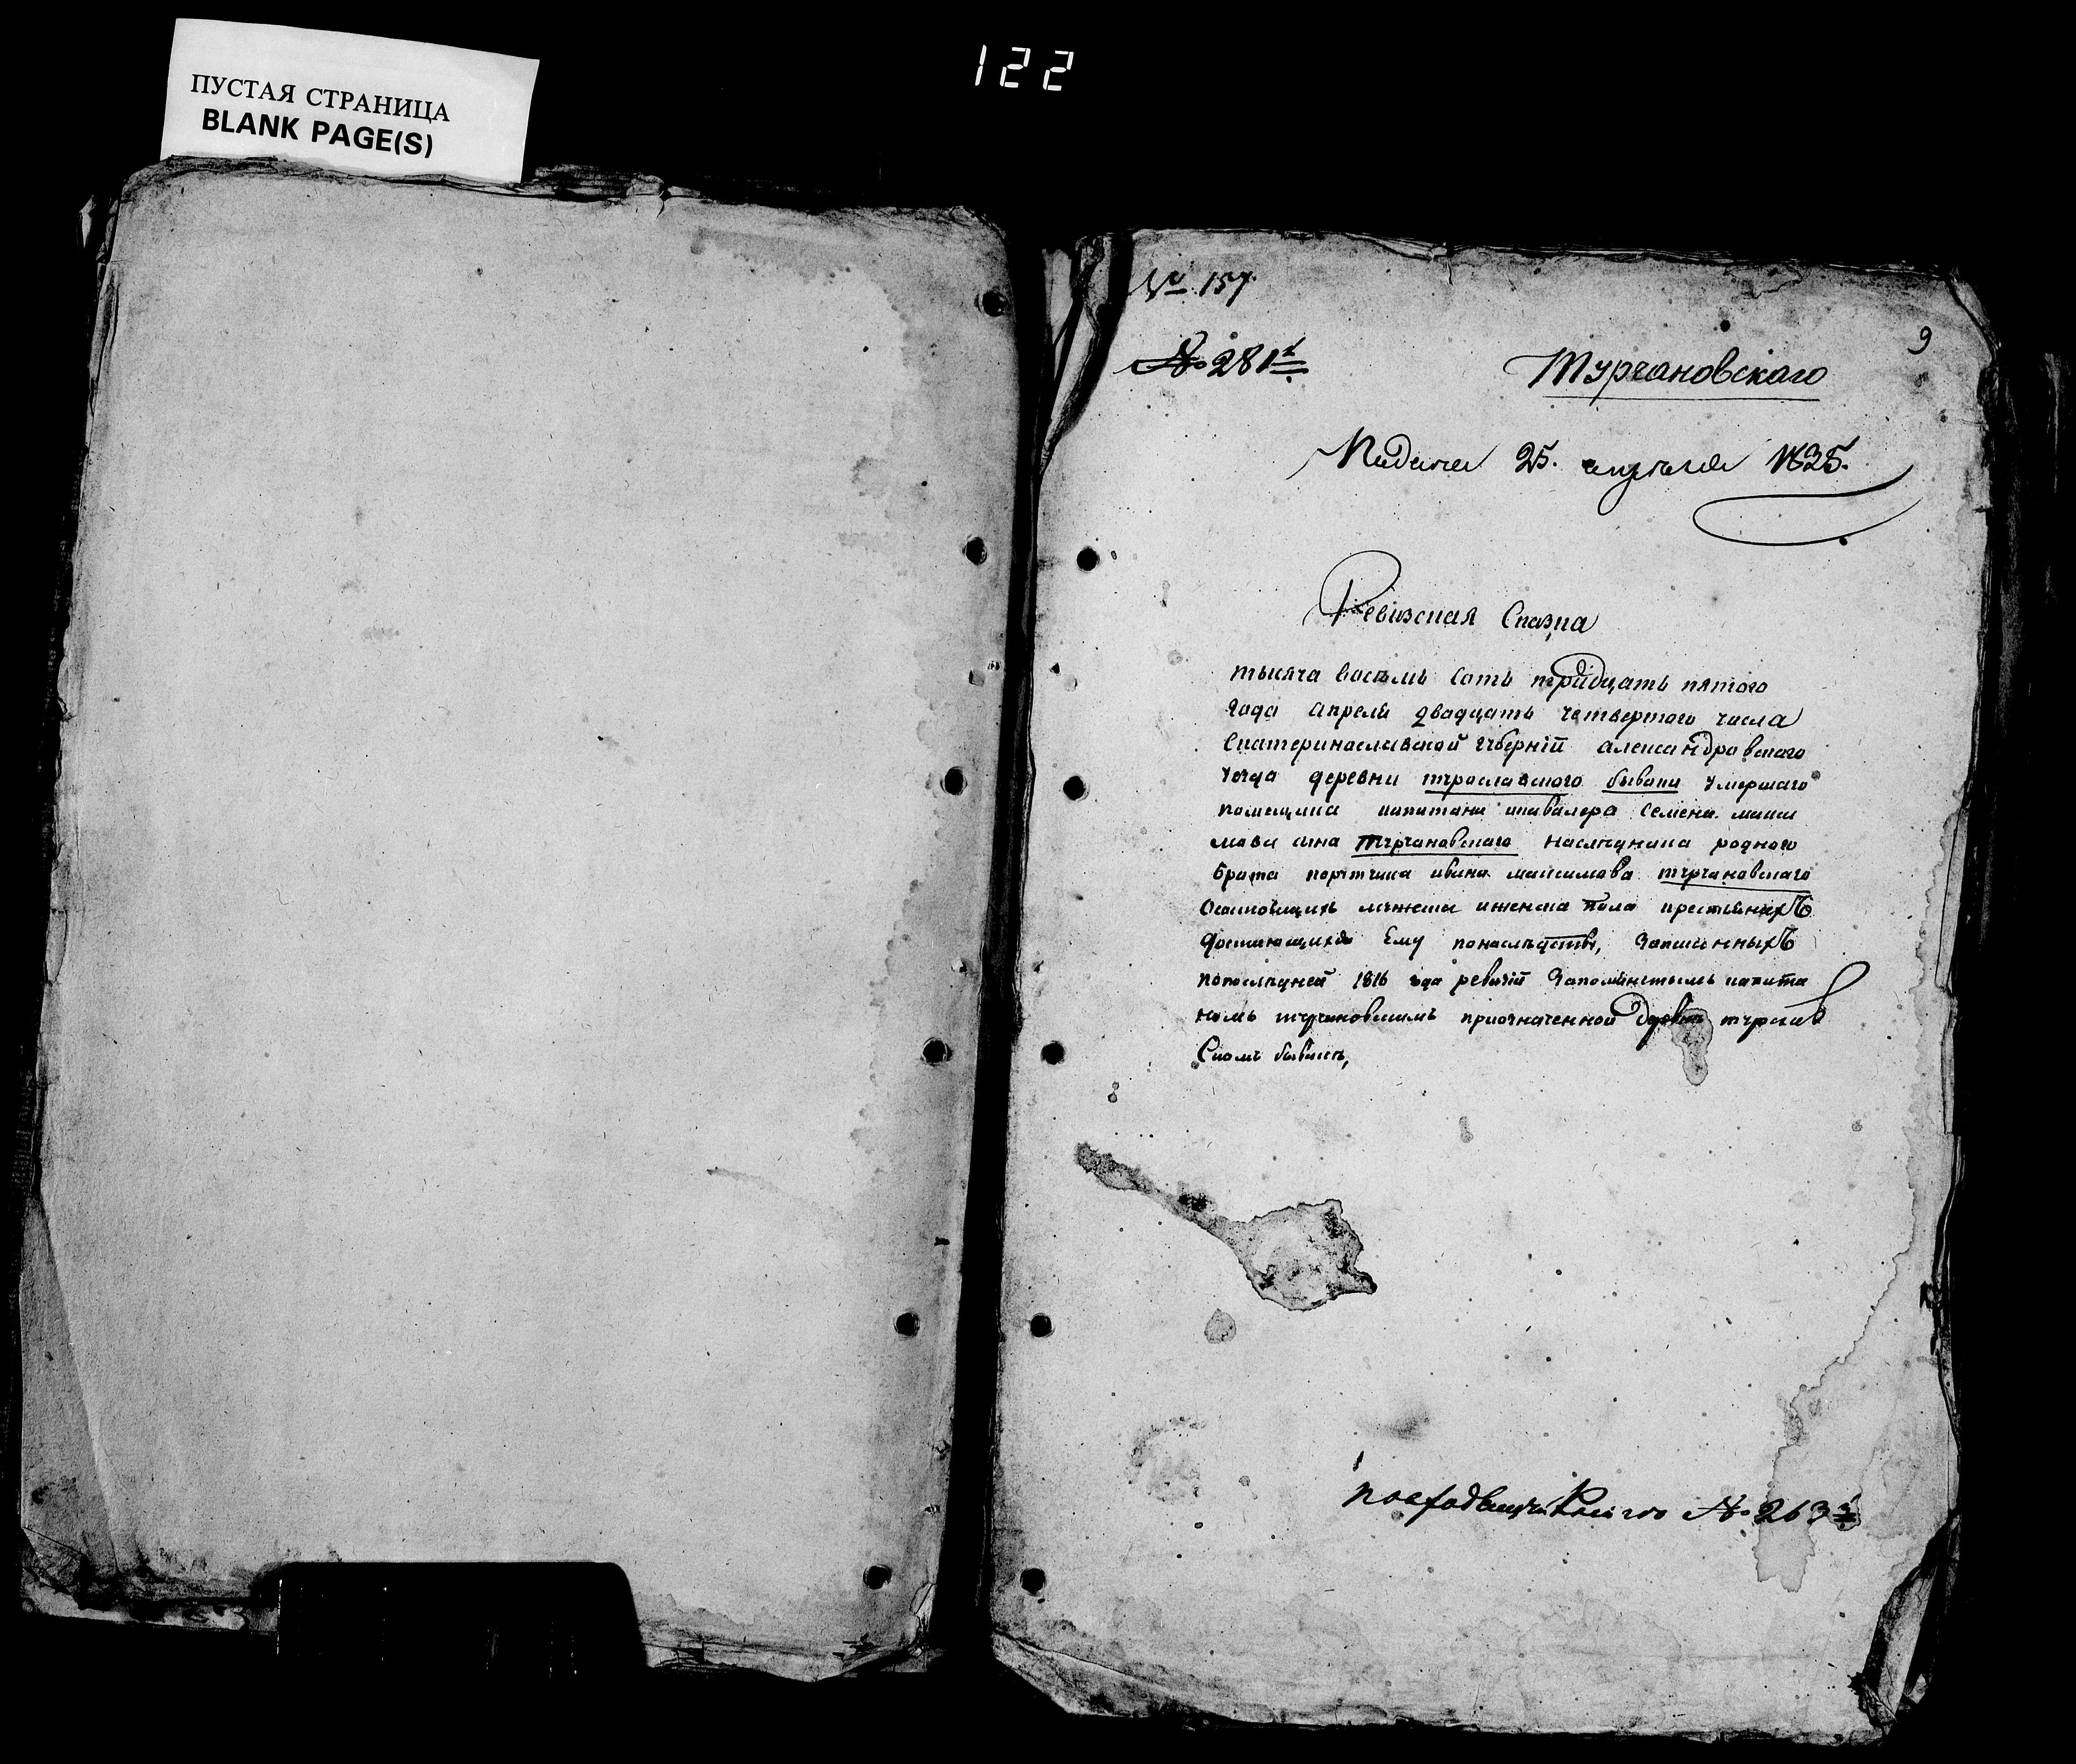 122
ПУСТАЯ СТРАНИЦА
BLANK PAGE(S)
№ 157
9
№ 281
Турчановскаго
Подана 25. апреля 1835.
Ревизская Сказка
тысяча восемь сотъ тридцать пятого
года апреля двадцать четвертого числа
Екатеринославской губернiй александровскаго
уезда деревни бывши умершаго
помещика капитана икавалера семена макси
мова сына Турчановскаго наследника родного
брата порутчика ивана максимова турчановскаго
мужеска иженска пола крестьянехъ
ему понаследству, записанныхъ
попоследней 1816 года ревизiй капита
номъ турчановскимъ приозначенной
Скомъ
№ 263